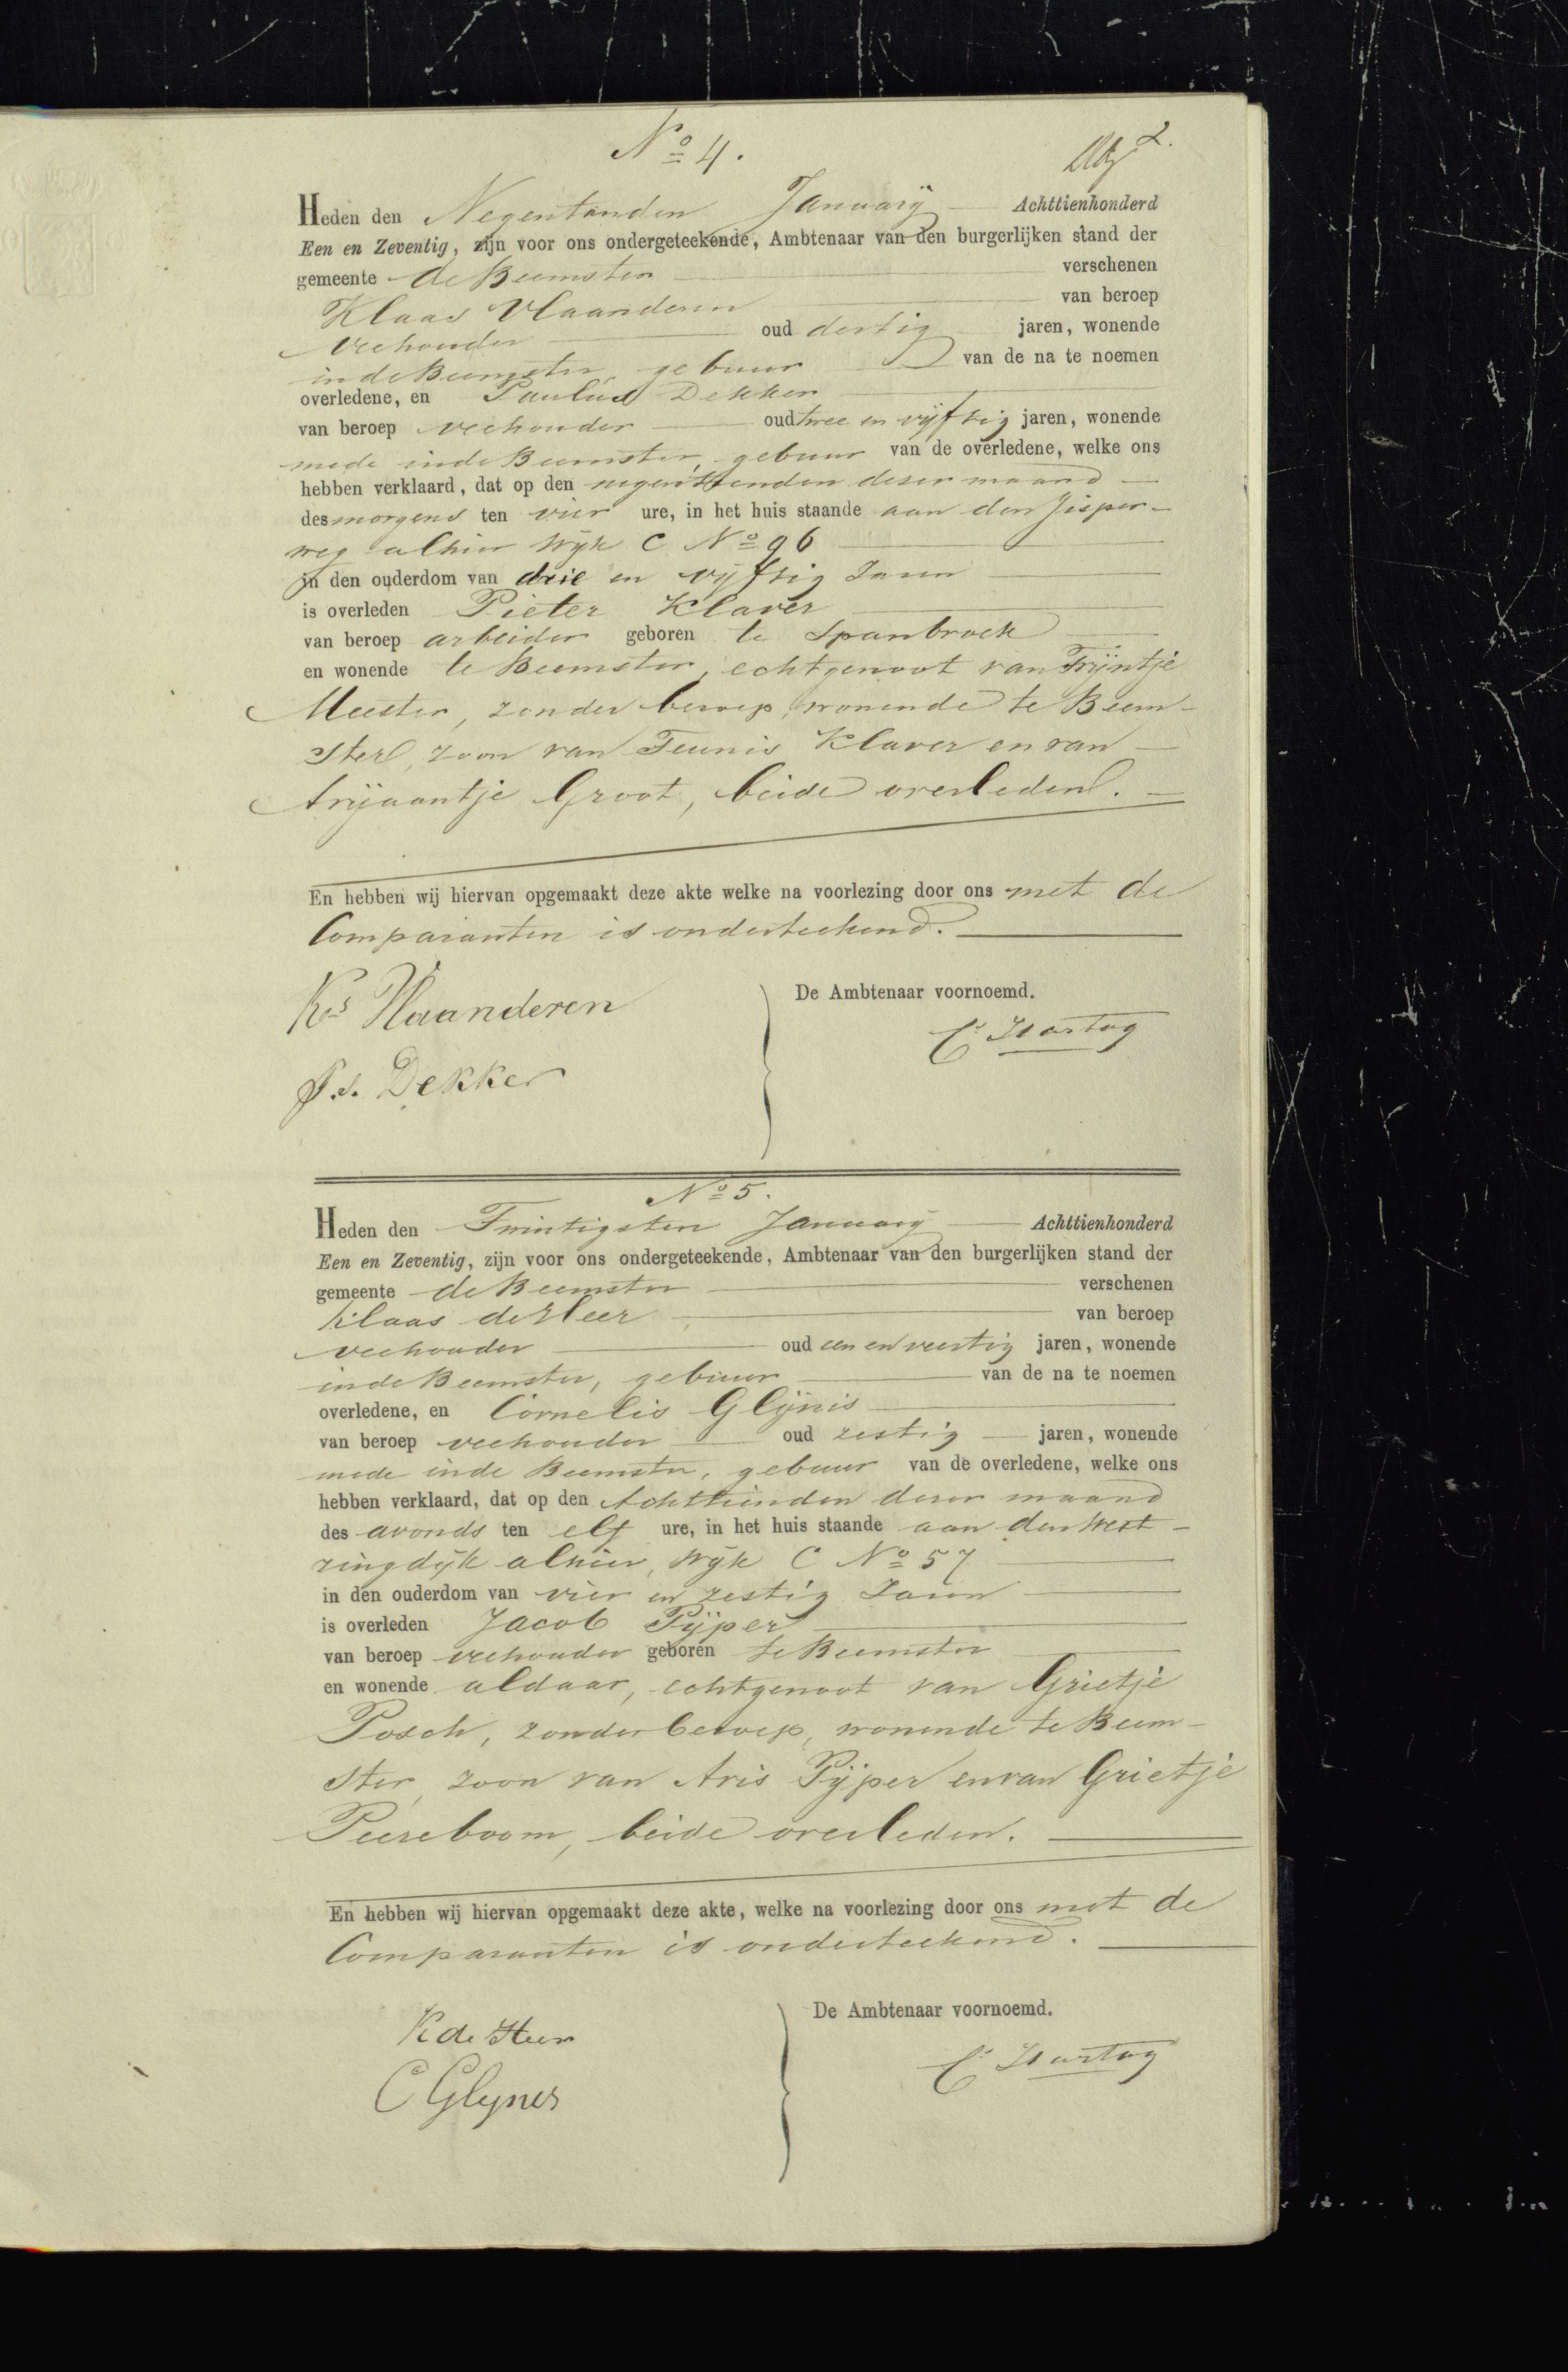 No 4.
2.
Heden den Negentienden Januarij Achttienhonderd
Een en Zeventig, zijn voor ons ondergeteekende, Ambtenaar van den burgerlijken stand der
gemeente de Beemster verschenen
Klaas Vlaanderen van beroep
veehouder oud dertig jaren, wonende
in de Beemster, gebuur van de na te noemen
overledene, en Paulus Dekker
van beroep veehouder oud twee en vijftig jaren, wonende
mede in de Beemster, gebuur van de overledene, welke ons
hebben verklaard, dat op den negentienden dezer maand
des morgens ten vier ure, in het huis staande aan den Jisper-
weg alhier Wijk C No 96
in den ouderdom van drie en vijftig Jaren
is overleden Pieter Klaver
van beroep arbeider geboren te Spanbroek
en wonende te Beemster, echtgenoot van Trijntje
Meester, zonder beroep, wonende te Beem-
ster, zoon van Teunis Klaver en van
Arijaantje Groot, beide overleden.
En hebben wij hiervan opgemaakt deze akte welke na voorlezing door ons met de
Comparanten is onderteekend.
Ks Vlaanderen
De Ambtenaar voornoemd.
C. Hartog
Ps. Dekker
No 5.
Heden den Twintigsten Januarij Achttienhonderd
Een en Zeventig, zijn voor ons ondergeteekende, Ambtenaar van den burgerlijken stand der
gemeente de Beemster verschenen
Klaas de Heer van beroep
veehouder oud een en veertig jaren, wonende
in de Beemster, gebuur van de na te noemen
overledene, en Cornelis Glijnis
van beroep veehouder oud zestig jaren, wonende
mede in de Beemster, gebuur van de overledene, welke ons
hebben verklaard, dat op den Achttienden dezer maand
des avonds ten elf ure, in het huis staande aan den West-
ringdijk alhier, Wijk C No 57
in den ouderdom van vier en zestig Jaren
is overleden Jacob Pijper
van beroep veehouder geboren te Beemster
en wonende aldaar, echtgenoot van Grietje
Posch, zonder beroep, wonende te Beem-
ster, zoon van Aris Pijper en van Grietje
Peereboom, beide overleden.
En hebben wij hiervan opgemaakt deze akte, welke na voorlezing door ons met de
Comparanten is onderteekend.
De Ambtenaar voornoemd.
K de Heer
C. Hartog
C Glynis